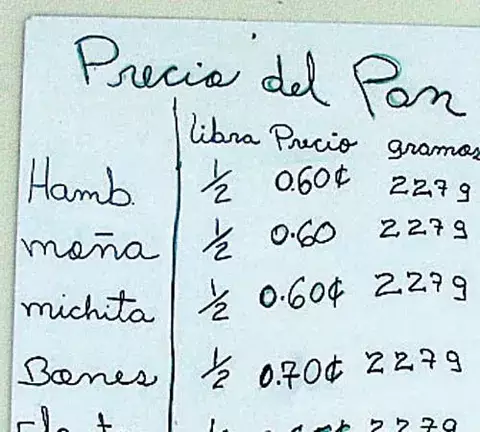 Precio del Pan
libra Precio gramos
Hamb. 1/2 0.60¢ 227g
moña 1/2 0.60 227g
michita 1/2 0.60¢ 227g
Bones 1/2 0.70¢ 227g
227g